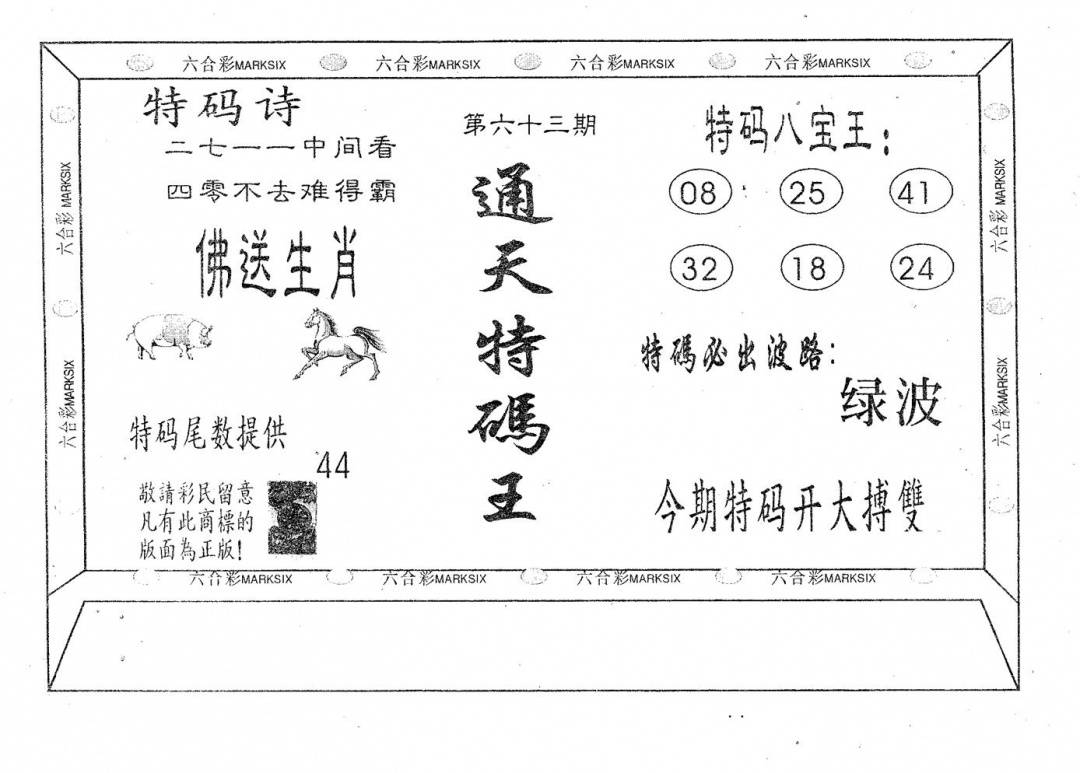 六合彩MARKSIX 六合彩MARKSIX 六合彩MARKSIX 六合彩MARKSIX
特码诗
二七一一中间看
四零不去难得霸
佛送生肖
特码尾数提供
44
敬請彩民留意
凡有此商標的
版面為正版!
第六十三期
通
天
特
碼
王
特码八宝王:
08 25 41
32 18 24
特碼必出波路:
绿波
今期特码开大搏雙
六合彩 MARKSIX
六合彩MARKSIX
六合彩 MARKSIX
六合彩MARKSIX
六合彩MARKSIX 六合彩MARKSIX 六合彩MARKSIX 六合彩MARKSIX